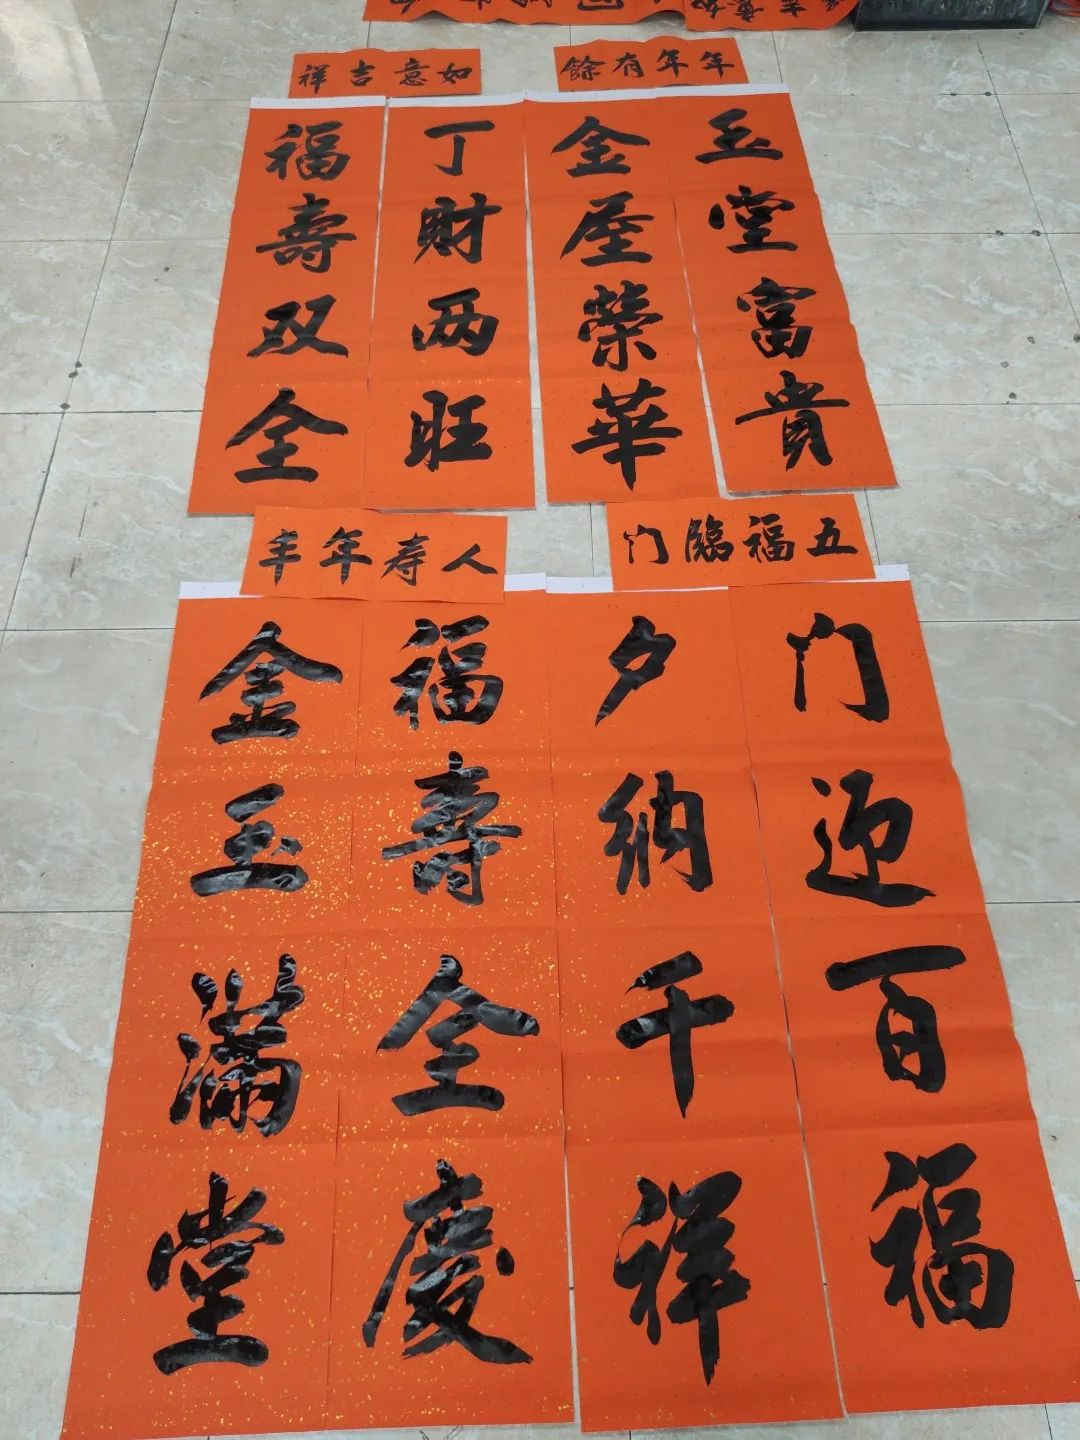 年年有餘
玉堂富貴
金屋榮華
如意吉祥
丁財两旺
福壽双全
五福臨门
门迎百福
夕纳千祥
人寿年丰
福壽全慶
金玉滿堂